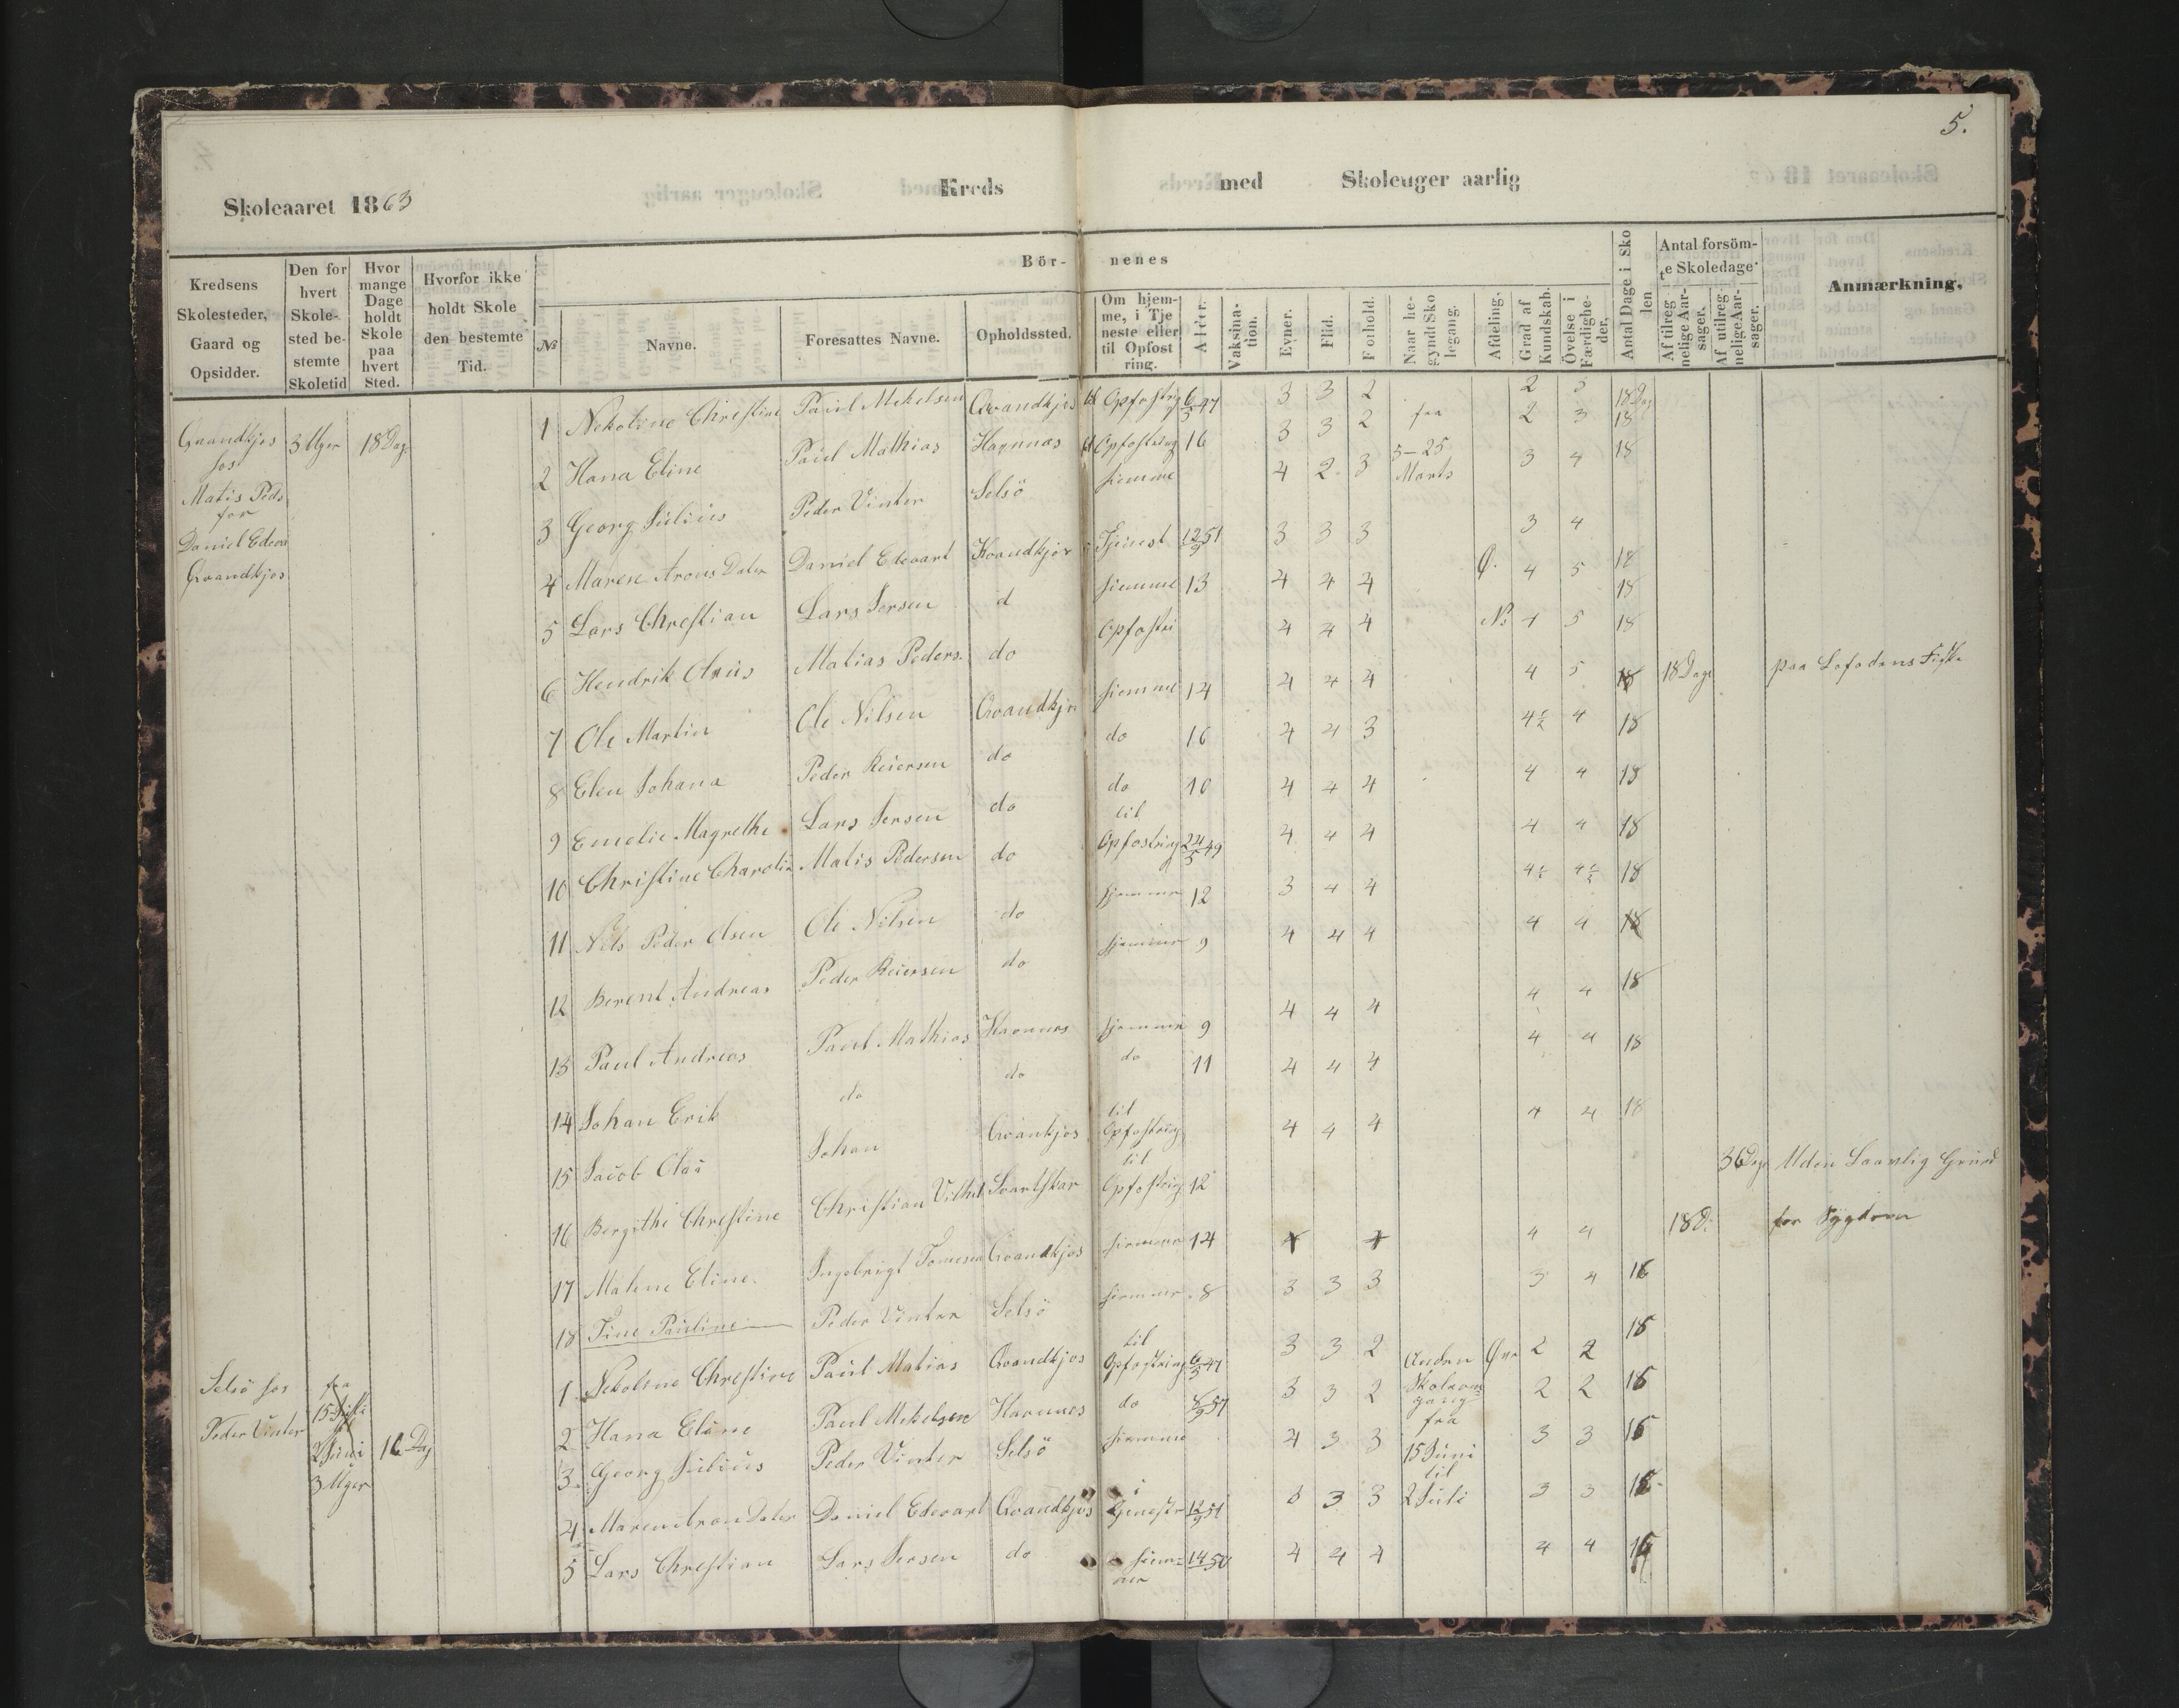 5.
Skoleaaret 1863 Kreds med Skoleuger aarlig
Kredsens Skolesteder, Gaard og Opsidder.
Den for hvert Skolested bestemte Skoletid
Hvor mange Dage holdt Skole paa hvert Sted.
Hvorfor ikke holdt Skole den bestemte Tid.
Bör- nenes
№
Navne.
Foresattes Navne.
Opholdssted.
Om hjemme, i Tjeneste eller til Opfostring.
Alder.
Vaksination.
Evner.
Flid.
Forhold.
Naar begyndt Skolegang.
Afdeling.
Grad af Kundskab.
Övelse i Færdigheder.
Antal Dage i Skolen
Antal forsömte Skoledage
Af tilregnelige Aarsager.
Af utilregnelige Aarsager.
Anmærkning.
3 Uger 18 Dag
hos
Matis Peds
for
Daniel Edeva
Qvandkjos
1 Nekoline Chrestine Paul Mekelsen Qvandkjos til Opfostrig 6/3 47 3 3 2 2 3 18 Dag
2 Hana Eline Paul Mathias til Opfostring 16 3 3 2 fra 2 3 18
3 Georg Julius Peder Vinter Selsö hiemme 4 2 3 5-25 Marts 3 4 18
4 Maren Arons Dater Daniel Edevart Kvandkjos i Tjenest 12/9 51 3 3 3 3 4
5 Lars Chrestian Lars Jersen d hiemme 13 4 4 4 Ø. 4 5 18
18
6 Hendrik Matias Peders. do Opfostri 4 4 4 N: 4 5 18
7 Ole Martin Ole Nilsen Qvandkjos hiemme 14 4 4 4 4 5 18 18 Dage paa Lofodens Fiske
8 Elen Johana Peder Reiersen do do 16 4 4 3 4 18
9 Emelie Magrethe Lars Jersen do do 10 4 4 4 4 4 18
10 Christine Charolin Matis Pedersen do til Opfostring 24/5 49 4 4 4 4 4 18
11 Nels Peder Olsen Ole Nilsen do hjemme 12 3 4 4 18
12 Berent Andreas Peder Reiersen do hjemme 9 4 4 4 4 4 18
13 Paul Andreas Paul Mathias hjemme 9 4 4 4 4 4 18
14 Johan Erik do do do 11 4 4 4 4 4 18
15 Jacob Johan Qvankjos til Opfostring 4 4 4 4 4 18
16 Bergithe Chrestine Christian Vilhel Svartskar til Opfostring 12 36 Dage Uden Laavlig Grund
17 Malene Eline Ingebrigt Qvandkjos hiemme 14 4 4 4 4 18 D. for Sygdom
18 Tine Pauline Peder Vinter Selsö hiemme 8 3 3 3 3 4 16
Selsö hos
Peder Vinter
fra
2 Juni
3 Uger
16 Dag
1 Nekoline Chrestine Paul Matias Qvandkjos til Opfostring 6/3 47 3 3 2 Anden 2 2
2 Hana Eline Paul Mekelsen do 8/9 57 3 3 2 gang 2 2 16
3 Georg Julius Peder Vinter Selsö hiemme 4 3 3 fra 15 Juni til 2 Juli 3 3 16
4 Maren Aron Dater Daniel Edevart Qvandkjos i Tjenest 12/9 51 3 3 3 3 3 16
5 Lars Chrestian Lars Jersen do hiem= 14/ 50 4 4 4 4 4